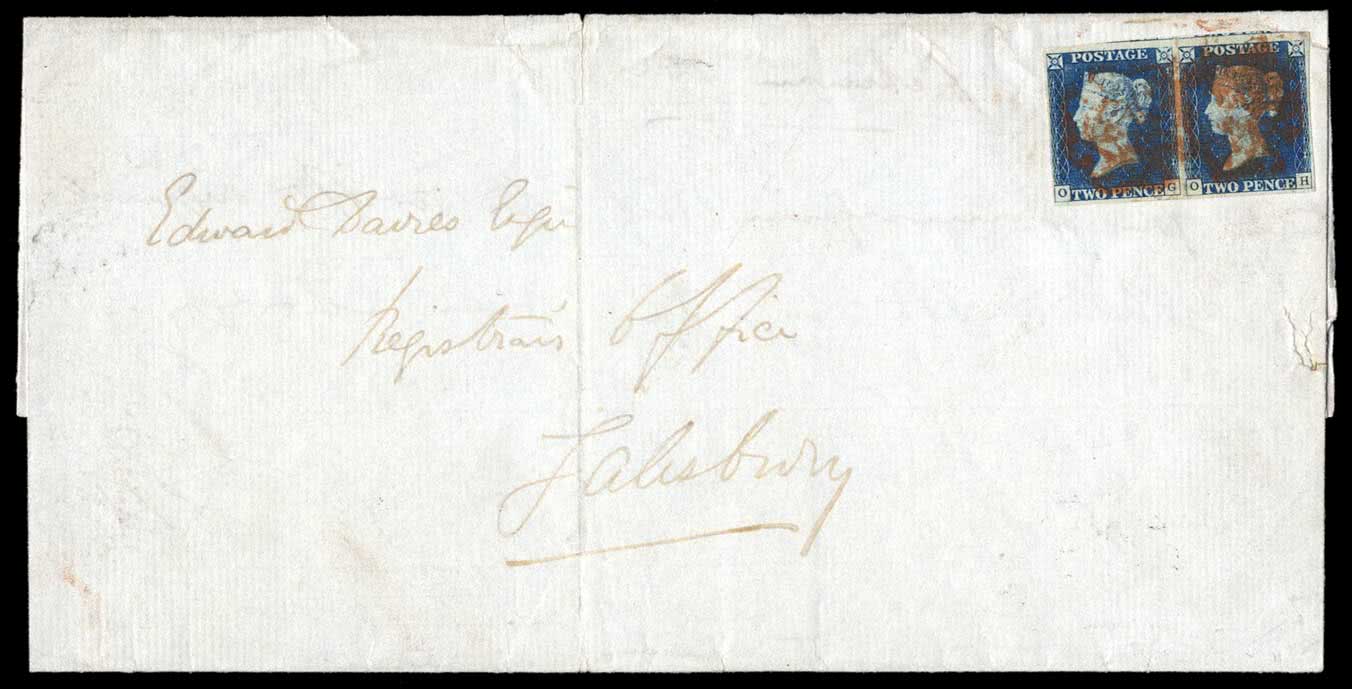 POSTAGE POSTAGE
O TWO PENCE G O TWO PENCE H
Edward Davies Esqre
Registrars Office
Salisbury